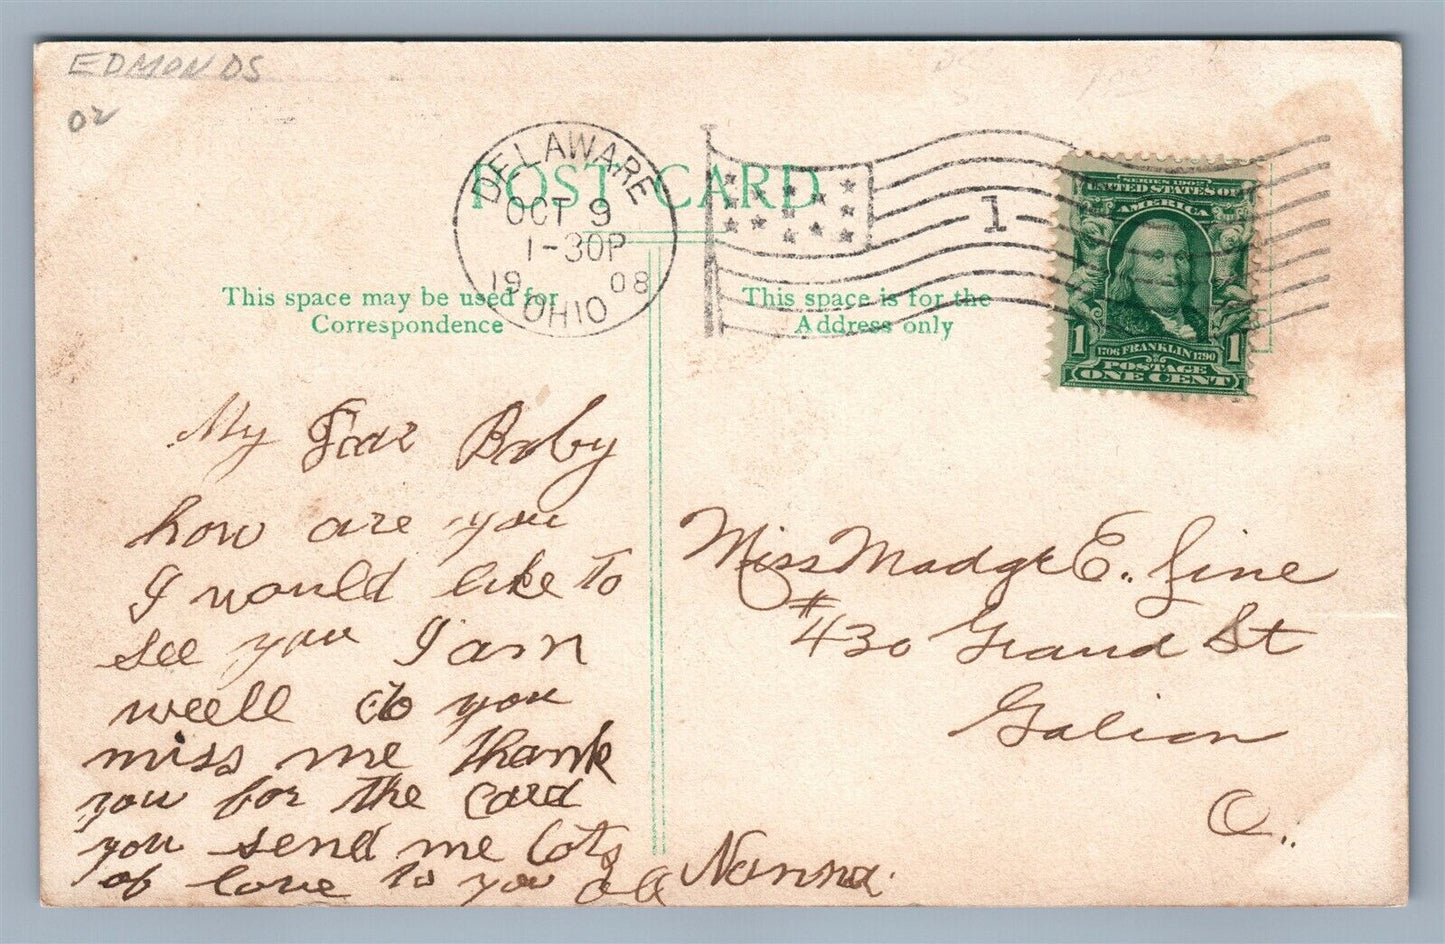 EDMONDS
02
POST CARD
DELAWARE
OCT 9
1-30P
1908
OHIO
1
SERIES 1902
UNITED STATES OF
AMERICA
1 1
1706 FRANKLIN 1790
POSTAGE
ONE CENT
This space may be used for
Correspondence
This space is for the
Address only
My Dear Baby
how are you
I would like to
see you I am
weell do you
miss me thank
you for the card
you send me lots
of love to you all Nanna.
Miss Madge E. Line
#430 Grand St
Galion
O..